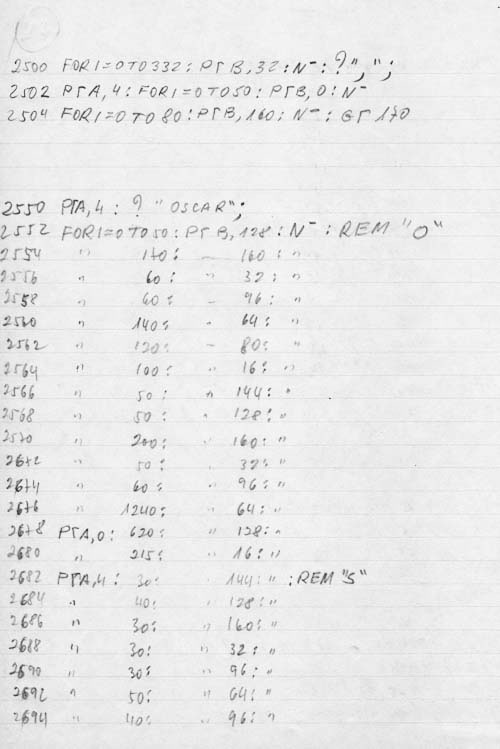 2500 FOR I=0 TO 332: PГB, 32: N⁻: ?",";
2502 PГA, 4: FOR I=0 TO 50: PГB, 0: N⁻
2504 FOR I=0 TO 80: PГB, 160: N⁻: GГ 170
2550 PГA, 4: ? "OSCAR";
2552 FOR I=0 TO 50: PГB, 128: N⁻: REM "O"
2554 " 170: - 160: "
2556 " 60: - 32: "
2558 " 60: - 96: "
2560 " 140: " 64: "
2562 " 120: - 80: "
2564 " 100: " 16: "
2566 " 50: " 144: "
2568 " 50: " 128: "
2570 " 200: " 160: "
2672 " 50: " 32: "
2674 " 60: " 96: "
2676 " 1240: " 64: "
2678 PГA, 0: 620: " 128: "
2680 " 215: " 16: "
2682 PГA, 4: 30: " 144: " : REM "S"
2684 " 40: " 128: "
2686 " 30: " 160: "
2688 " 30: " 32: "
2690 " 30: " 96: "
2692 " 50: " 64: "
2694 " 40: " 96: "